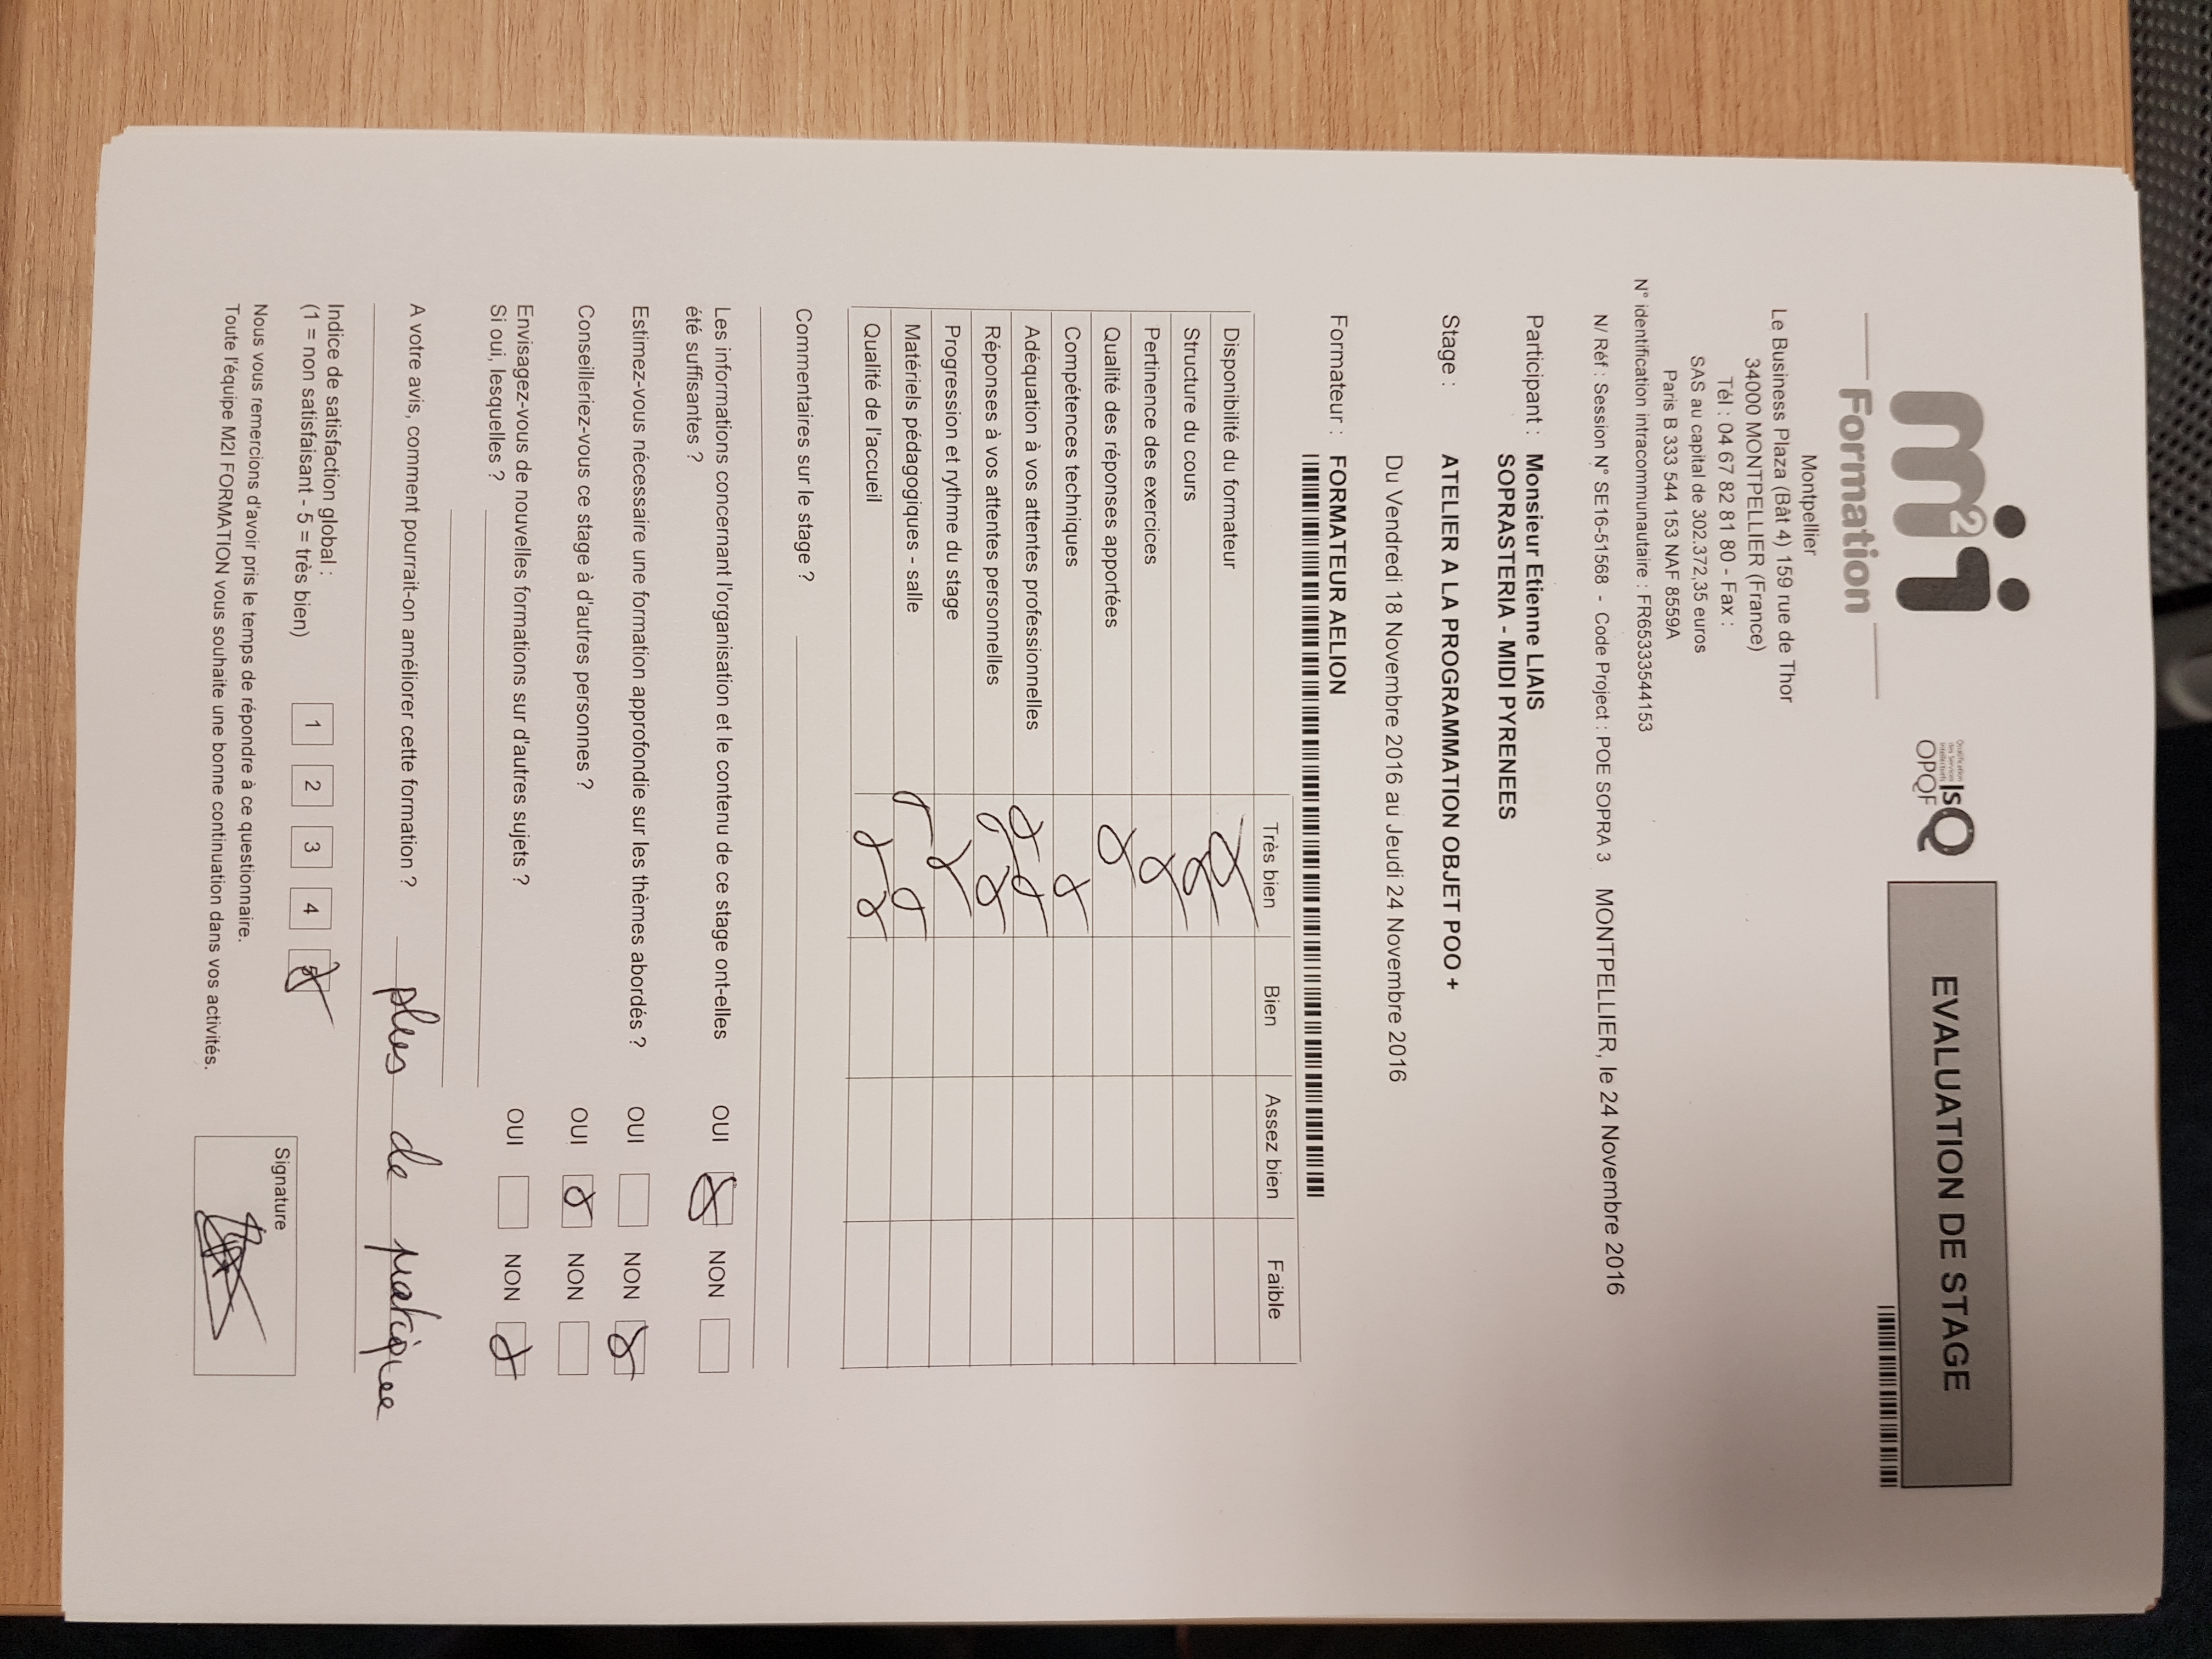 m2i
Formation
Qualification
des Services
Intellectuels
ISQ
OPQF
EVALUATION DE STAGE
Montpellier
Le Business Plaza (Bât 4) 159 rue de Thor
34000 MONTPELLIER (France)
Tél : 04 67 82 81 80 - Fax :
SAS au capital de 302.372,35 euros
Paris B 333 544 153 NAF 8559A
N° identification intracommunautaire : FR65333544153
N/ Réf : Session N° SE16-51568 - Code Project : POE SOPRA 3 MONTPELLIER, le 24 Novembre 2016
Participant : Monsieur Etienne LIAIS
SOPRASTERIA - MIDI PYRENEES
Stage : ATELIER A LA PROGRAMMATION OBJET POO +
Du Vendredi 18 Novembre 2016 au Jeudi 24 Novembre 2016
Formateur : FORMATEUR AELION
Très bien Bien Assez bien Faible
Disponibilité du formateur
Structure du cours
Pertinence des exercices
Qualité des réponses apportées
Compétences techniques
Adéquation à vos attentes professionnelles
Réponses à vos attentes personnelles
Progression et rythme du stage
Matériels pédagogiques - salle
Qualité de l'accueil
Commentaires sur le stage ?
Les informations concernant l'organisation et le contenu de ce stage ont-elles OUI NON
été suffisantes ?
Estimez-vous nécessaire une formation approfondie sur les thèmes abordés ? OUI NON
Conseilleriez-vous ce stage à d'autres personnes ? OUI NON
Envisagez-vous de nouvelles formations sur d'autres sujets ? OUI NON
Si oui, lesquelles ?
A votre avis, comment pourrait-on améliorer cette formation ? plus de pratique
Indice de satisfaction global :
(1 = non satisfaisant - 5 = très bien) 1 2 3 4 5
Signature
Nous vous remercions d'avoir pris le temps de répondre à ce questionnaire.
Toute l'équipe M2I FORMATION vous souhaite une bonne continuation dans vos activités.